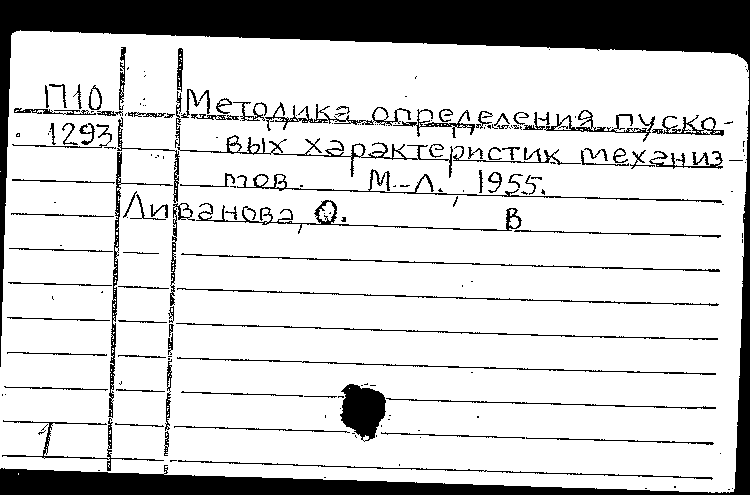 П10 Методика определения пуско-
1293 вых характеристик механиз
мов. М.-Л., 1955.
Ливанова, О. В
1